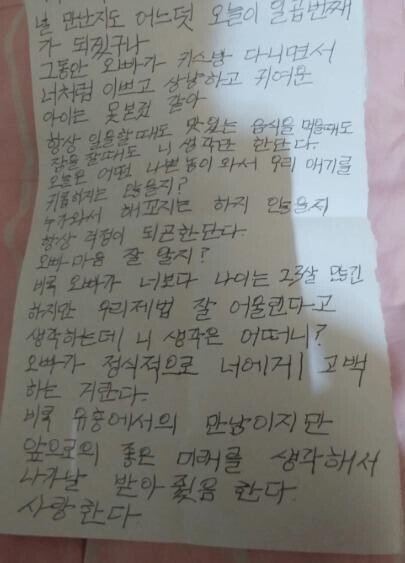 널 만난지도 어느덧 오늘이 일곱번째
가 되겠구나
그동안 오빠가 키스방 다니면서
너처럼 이쁘고 상냥하고 귀여운
아이는 못본것 같아
항상 일을할때도 맛있는 음식을 먹을때도
잠을 잘때도 니 생각만 한단다.
오늘은 어떤 나쁜놈이 와서 우리 애기를
않을지?
누가와서 해꼬지는 하지 않을지
항상 걱정이 되곤한단다.
오빠 마음 잘 알지?
비록 오빠가 너보다 나이는 23살 많긴
하지만 우리제법 잘 어울린다고
생각하는데 니 생각은 어떠니?
오빠가 정식적으로 너에게 고백
하는 거란다.
비록 유흥에서의 만남이지만
앞으로의 좋은 미래를 생각해서
나가날 받아 줬음 한다.
사랑한다